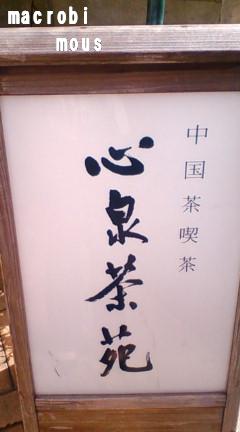 macrobi
mous
中国茶喫茶
心泉茶苑